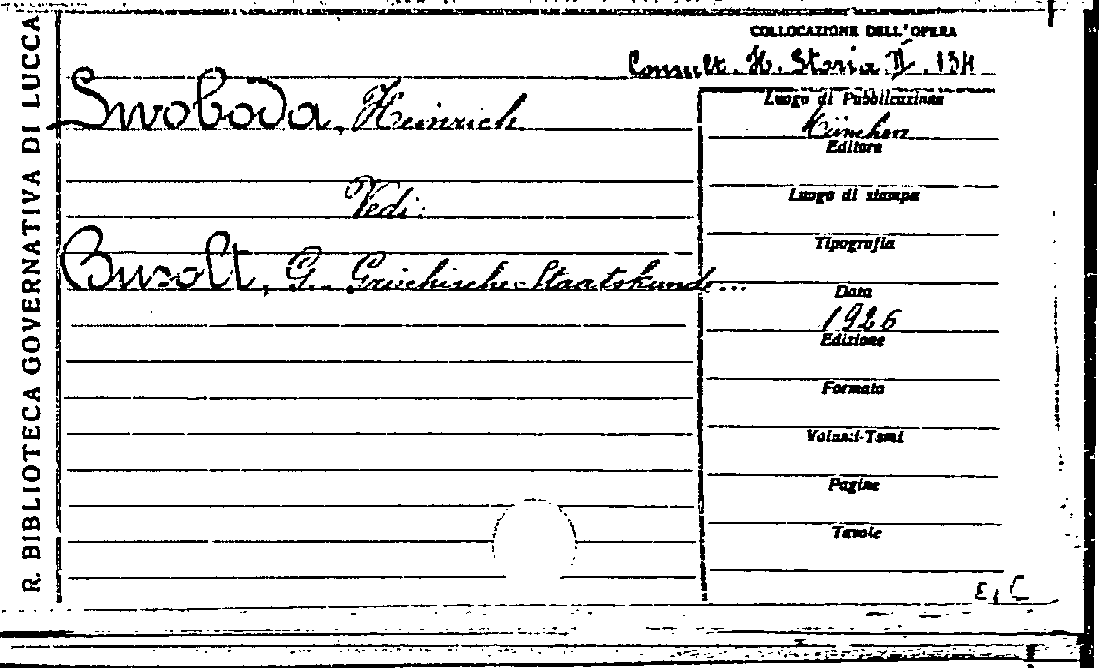 R. BIBLIOTECA GOVERNATIVA DI LUCCA
COLLOCAZIONE DELL'OPERA
Consult. H. Storia II. 134
Swoboda, Heinrich
Vedi:
Busolt, G. Griechische Staatskunde...
Luogo di Pubblicazione
München
Editore
Luogo di stampa
Tipografia
Data
1926
Edizione
Formato
Volumi-Tomi
Pagine
Tavole
E, C